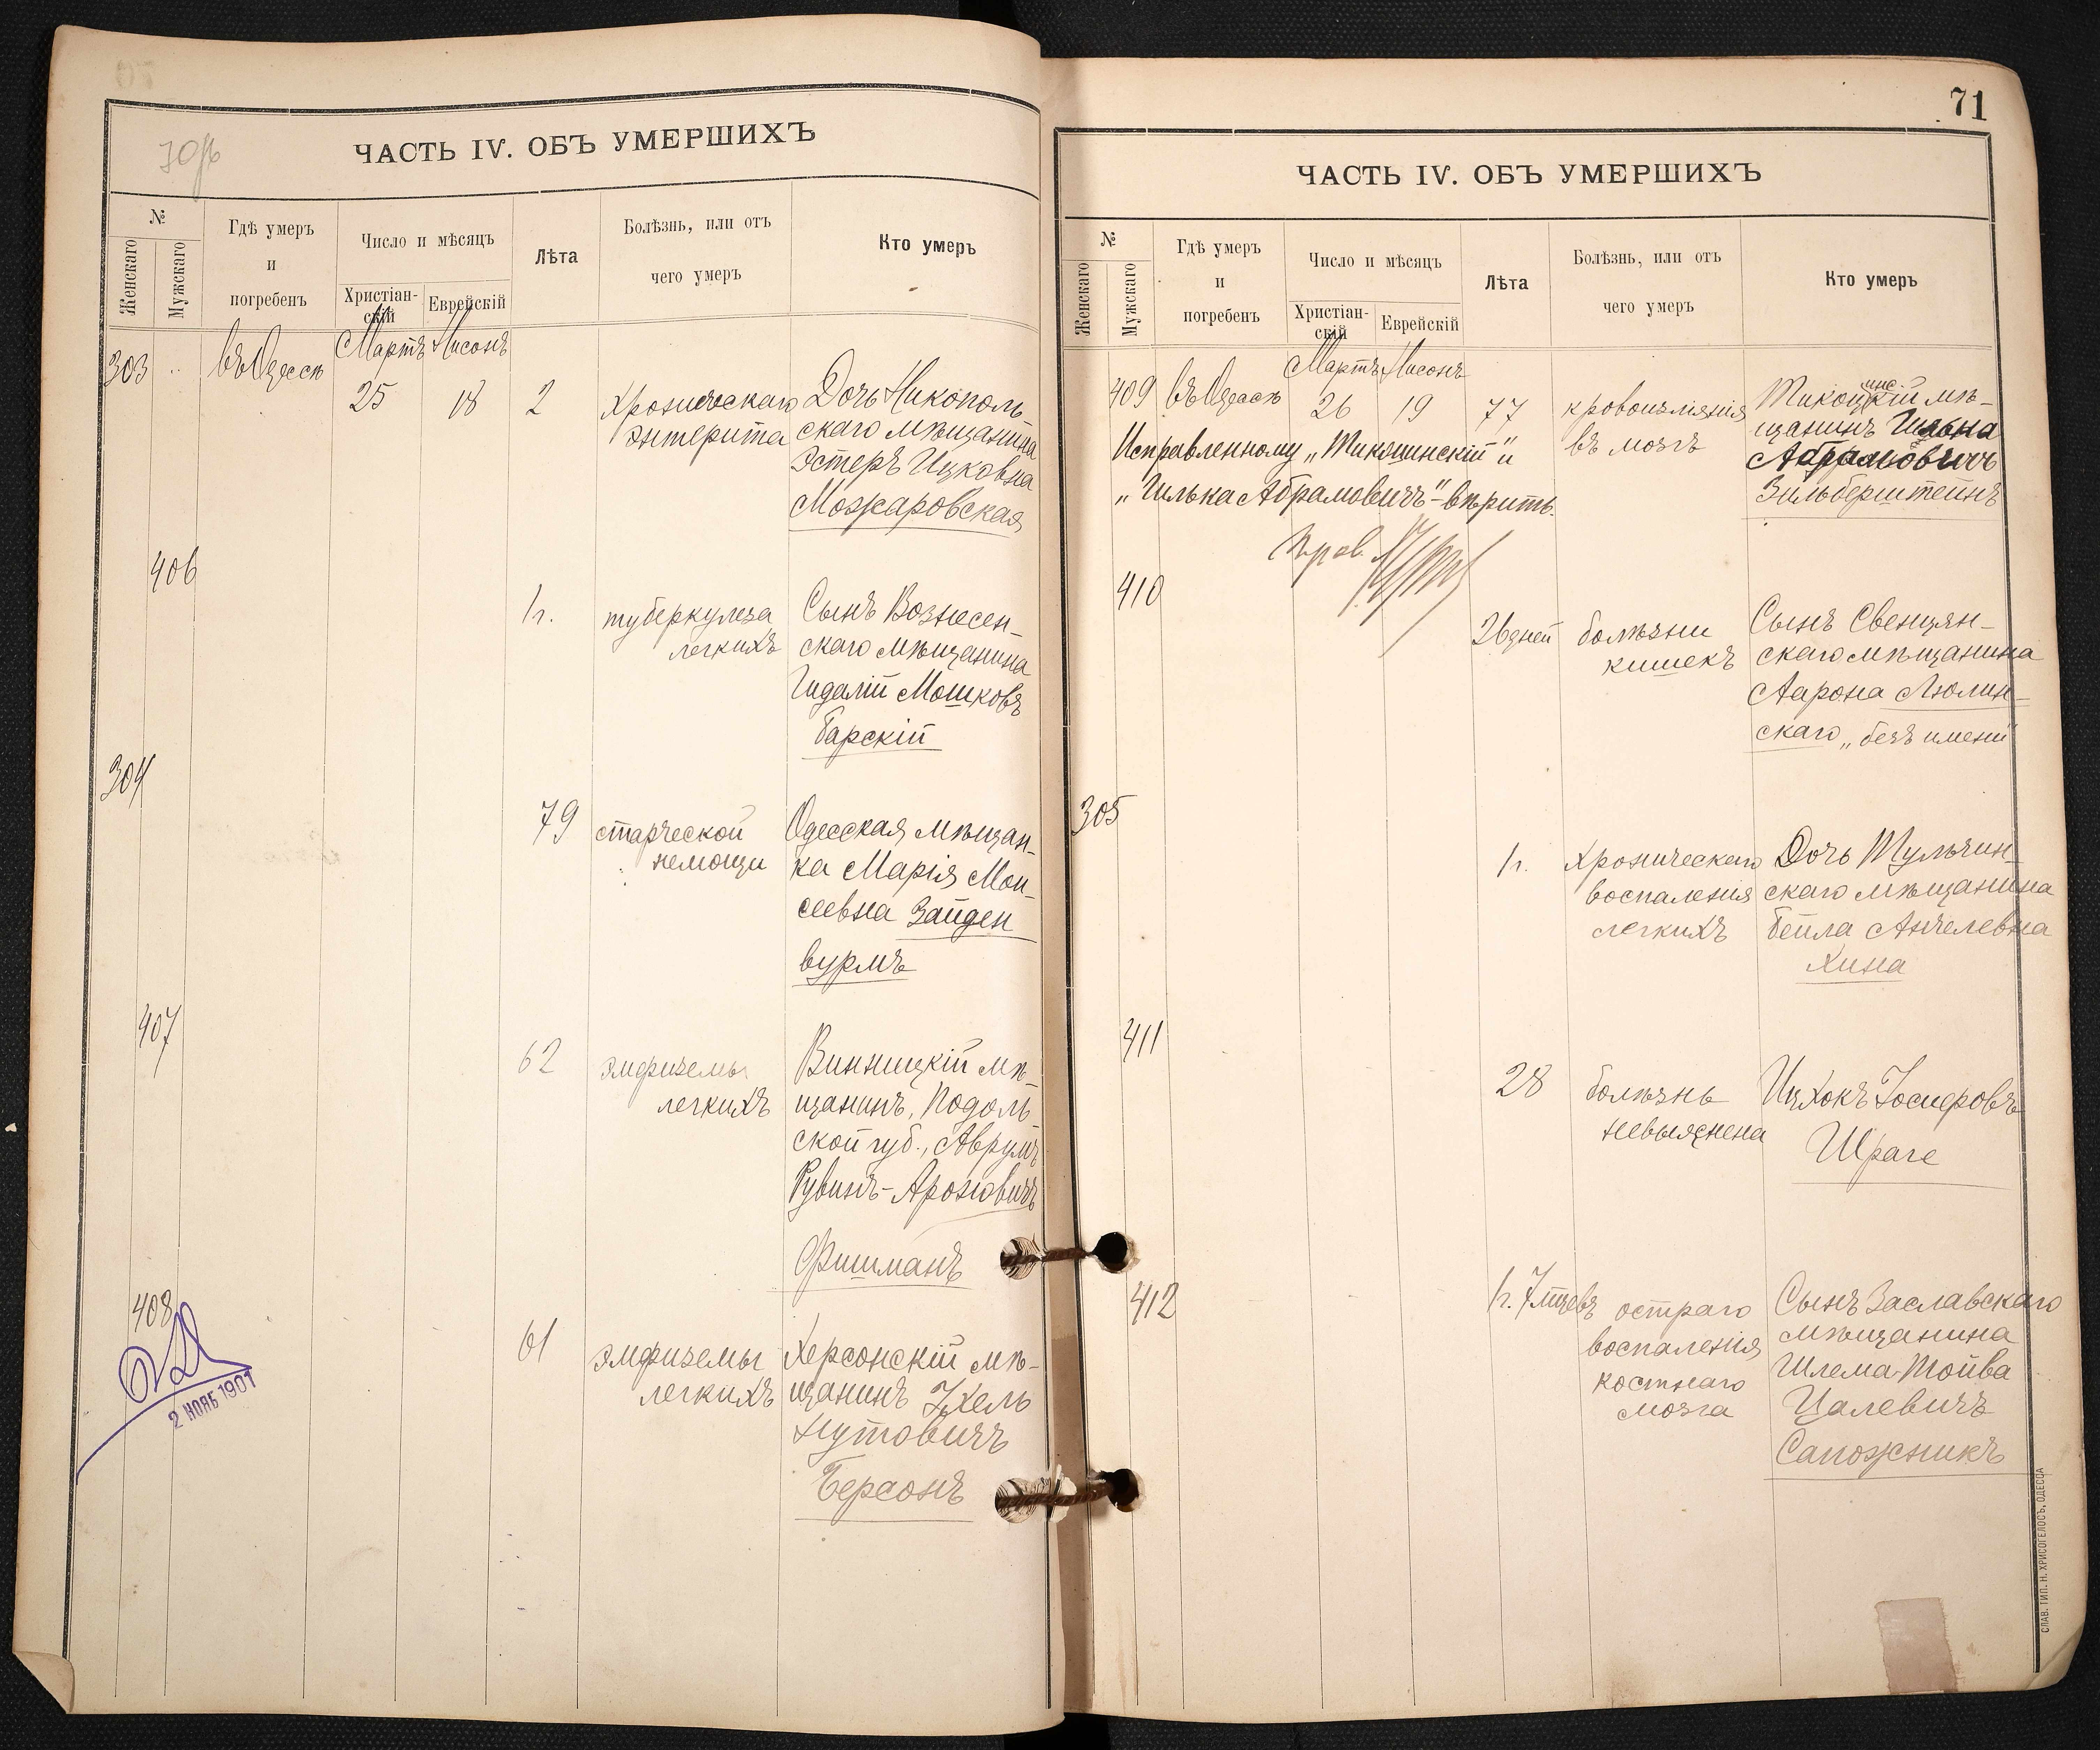 70об
ЧАСТЬ IV. ОБЪ УМЕРШИХЪ
№
Женскаго
Мужскаго
Гдѣ умеръ
и
погребенъ
Число и мѣсяцъ
Христіан-
скій
Еврейскій
Лѣта
Болѣзнь, или отъ
чего умеръ
Кто умеръ
303
въ Одессѣ
Мартъ
25
Нисонъ
18
2
хроническаго
энтерита
Дочь Никополь
скаго мѣщанина
Эстеръ Ицковна
Можаровская
406
1 г.
туберкулеза
легкихъ
Сынъ Вознесен-
скаго мѣщанина
Гидалій Мошковъ
Барскій
304
79
старческой
немощи
Одесская мѣщан-
ка Марія Мои-
сеевна Зайден
вурмъ
407
62
эмфиземы
легкихъ
Винницкій мѣ-
щанинъ, Подоль
ской губ., Аврумъ
Рувинъ-Ароновичъ
Фишманъ
408
61
эмфиземы
легкихъ
Херсонскій мѣ-
щанинъ Ихель
Нутовичъ
Берсонъ
2 НОЯБ 1901
71
ЧАСТЬ IV. ОБЪ УМЕРШИХЪ
№
Женскаго
Мужскаго
Гдѣ умеръ
и
погребенъ
Число и мѣсяцъ
Христіан-
скій
Еврейскій
Лѣта
Болѣзнь, или отъ
чего умеръ
Кто умеръ
409
въ Одессѣ
Мартъ
26
Нисонъ
19
77
кровоизліянія
въ мозгъ
мѣ-
щанинъ Гилька
Абрамовичъ
Зильберштейнъ
Исправленному „Тикоцинскій" и
„Гилька Абрамовичъ" - вѣрить.
410
26 дней
болѣзни
кишекъ
Сынъ Свенцян-
скаго мѣщанина
Аарона Люлин-
скаго „безъ имени"
305
1 г.
хроническаго
воспаленія
легкихъ
Дочь Тульчин-
скаго мѣщанина
Бейла Анчелевна
Хина
411
28
болѣзнь
невыяснена
Ицхокъ Іосиферовъ
Шраге
412
1 г. 7 мцевъ
остраго
воспаленія
костнаго
мозга
Сынъ Заславскаго
мѣщанина
Шлема-Тойва
Цалевичъ
Сапожникъ
СЛАВ. ТИП. Н. ХРИСОГЕЛОСЪ, ОДЕССА